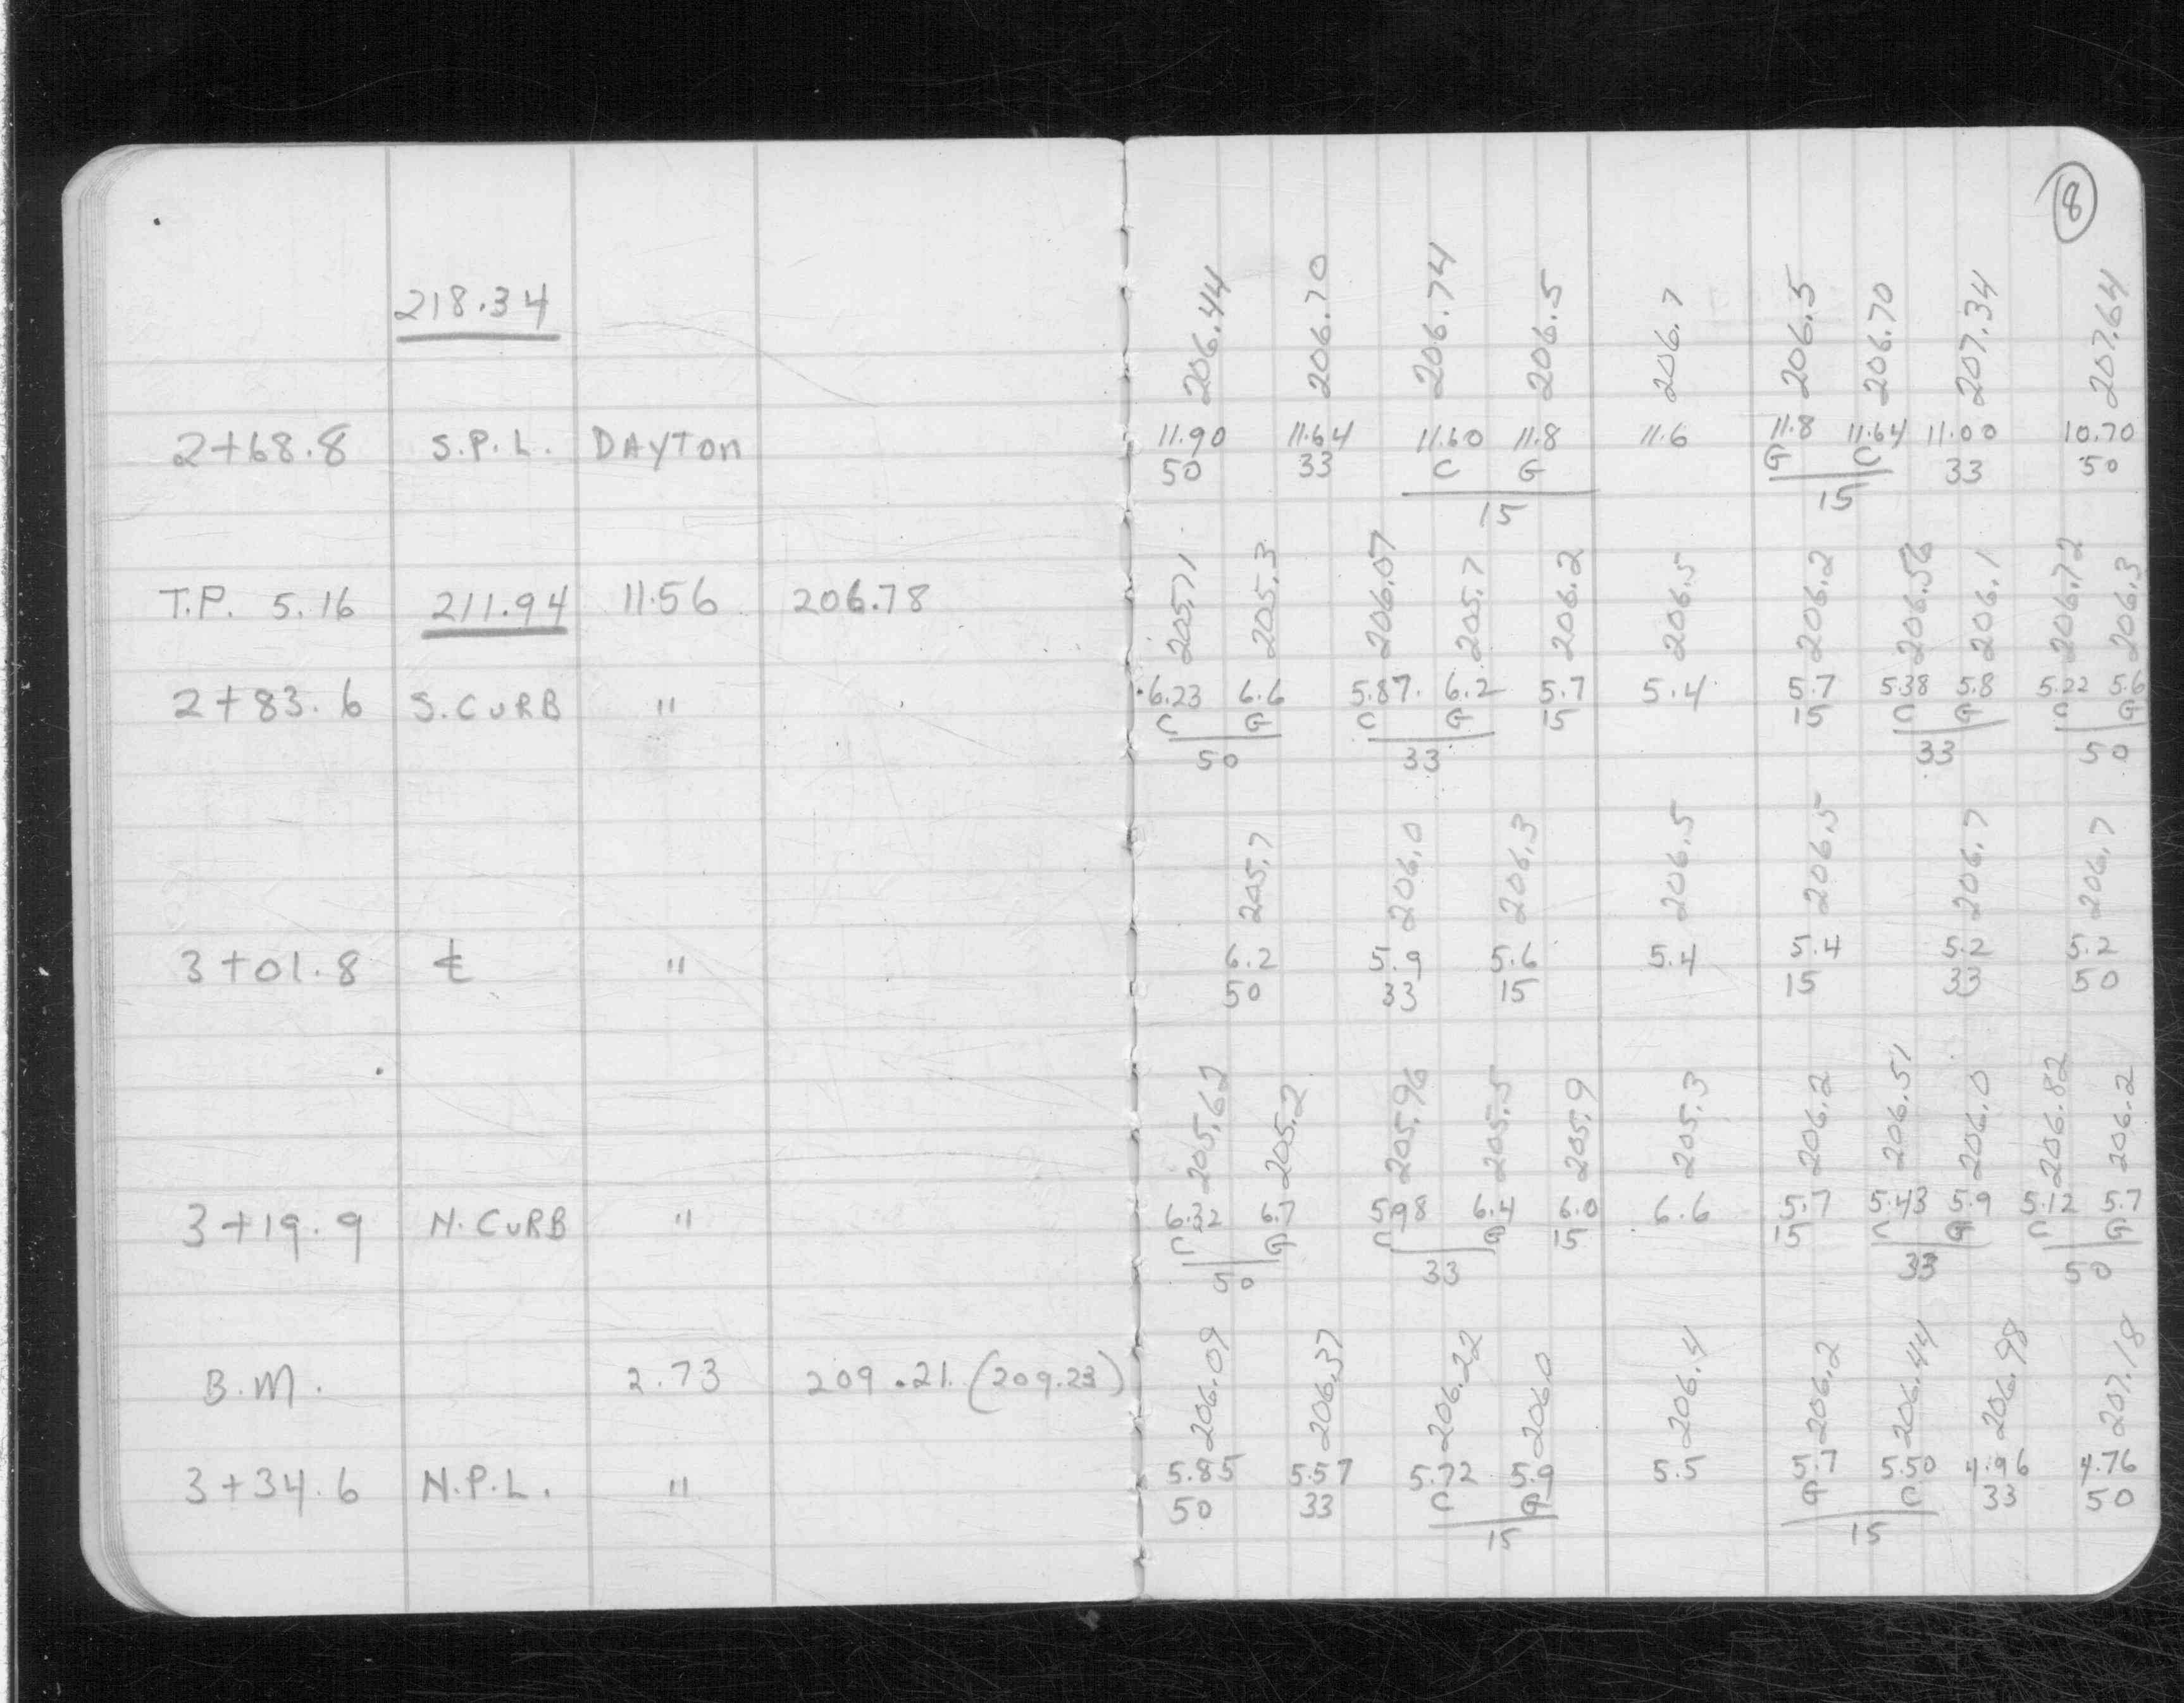 8
218.34
206.44 206.70 206.74 206.5 206.7 206.5 206.70 207.34 207.64
2+68.8 S.P.L. DAYTON 11.90 11.64 11.60 11.8 11.6 11.8 11.64 11.00 10.70
50 33 C G G C 33 50
15 15
205.71 205.3 206.07 205.7 206.2 206.5 206.2 206.56 206.1 206.72 206.3
T.P. 5.16 211.94 11.56 206.78
2+83.6 S. CURB " 6.23 6.6 5.87 6.2 5.7 5.4 5.7 5.38 5.8 5.22 5.6
C G C G 15 15 C G C G
50 33 33 50
205.7 206.0 206.3 206.5 206.5 206.7 206.7
3+01.8 ℄ " 6.2 5.9 5.6 5.4 5.4 5.2 5.2
50 33 15 15 33 50
205.62 205.2 205.96 205.5 205.9 205.3 206.2 206.51 206.0 206.82 206.2
3+19.9 N. CURB " 6.32 6.7 5.98 6.4 6.0 6.6 5.7 5.43 5.9 5.12 5.7
C G C G 15 15 C G C G
50 33 33 50
206.09 206.37 206.22 206.0 206.4 206.2 206.44 206.98 207.18
B.M. 2.73 209.21 (209.23)
3+34.6 N.P.L. " 5.85 5.57 5.72 5.9 5.5 5.7 5.50 4.96 4.76
50 33 C G G C 33 50
15 15